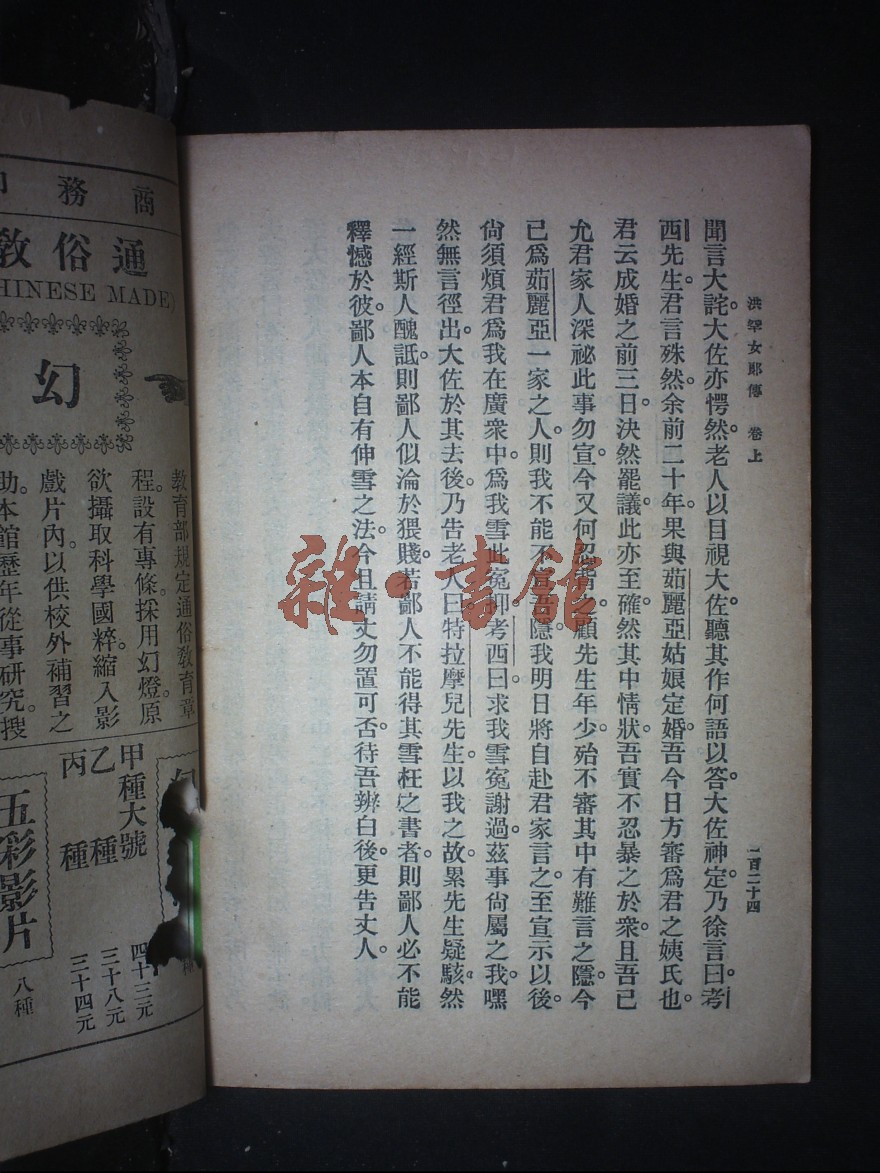 洪罕女郎傳 卷上
一百二十四
聞言大詫。大佐亦愕然。老人以目視大佐。聽其作何語以答。大佐神定。乃徐言曰。考
西先生。君言殊然。余前二十年。果與茹麗亞姑娘定婚。吾今日方審爲君之姨氏也。
君云成婚之前三日。決然罷議。此亦至確。然其中情狀。吾實不忍暴之於衆。且吾已
允君家人深祕此事勿宣。今又何忍背之。顧先生年少。殆不審其中有難言之隱。今
已爲茹麗亞一家之人。則我不能不宣吾隱。我明日將自赴君家言之。至宣示以後。
尙須煩君爲我在廣衆中。爲我雪此冤抑。考西曰。求我雪冤謝過。茲事尙屬之我。嘿
然無言徑出。大佐於其去後。乃告老人曰。特拉摩兒先生。以我之故。累先生疑駭。然
一經斯人醜詆。則鄙人似淪於猥賤。若鄙人不能得其雪枉之書者。則鄙人必不能
釋憾於彼。鄙人本自有伸雪之法。今且請丈勿置可否。待吾辨白後。更告丈人。
雜·書館
商務
通俗敎
CHINESE MADE)
幻
敎育部規定通俗敎育章
程。設有專條。採用幻燈。原
欲攝取科學國粹。縮入影
戲片內。以供校外補習之
助。本館歷年從事硏究。搜
甲種大號
四十三元
乙種
三十八元
丙種
三十四元
五彩影片
八種